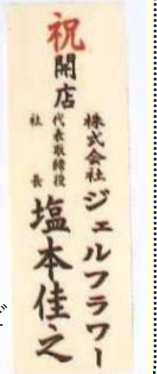 祝
開店
株式会社ジェルフラワー
代表取締役
社長
塩本佳之